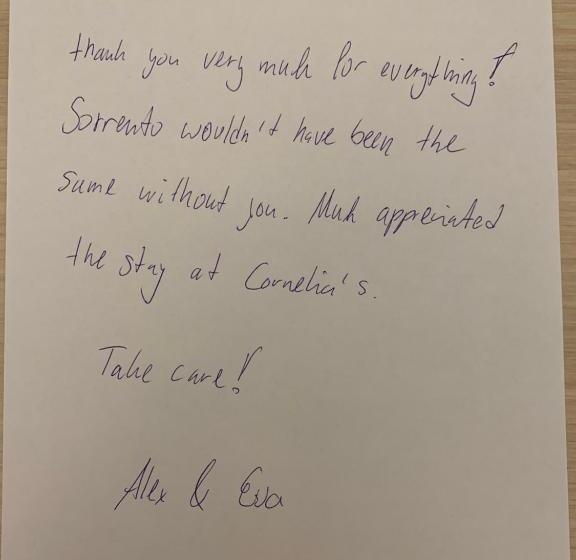 thank you very much for everything!
Sorrento wouldn't have been the
same without you. Much appreciated
the stay at Cornelia's.
Take care!
Alex & Eva